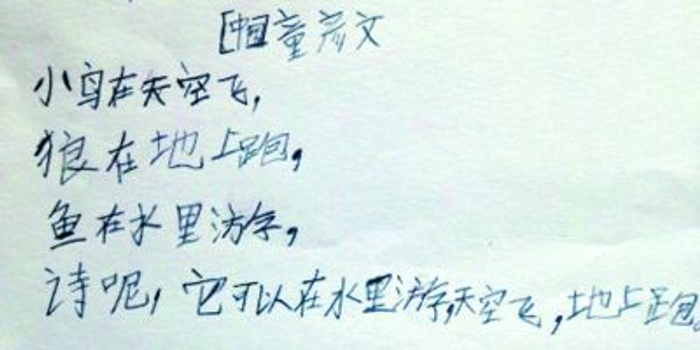 [中国]童彦文
小鸟在天空飞,
狼在地上跑,
鱼在水里游,
诗呢,它可以在水里游,天空飞,地上跑。